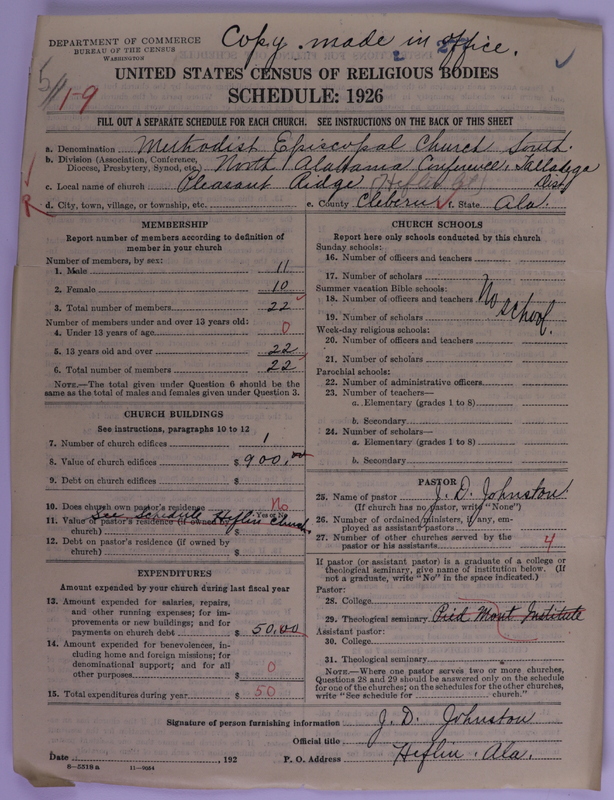 DEPARTMENT OF COMMERCE
BUREAU OF THE CENSUS
WASHINGTON
Copy made in office.
5/1-9
UNITED STATES CENSUS OF RELIGIOUS BODIES
SCHEDULE: 1926
FILL OUT A SEPARATE SCHEDULE FOR EACH CHURCH. SEE INSTRUCTIONS ON THE BACK OF THIS SHEET
a. Denomination Methodist Episcopal Church South.
b. Division (Association, Conference, Diocese, Presbytery, Synod, etc.) North Alabama Conference, Talladega Dist.
c. Local name of church Pleasant Ridge (Heflin
d. City, town, village, or township, etc. e. County Cleburn f. State Ala.
R
MEMBERSHIP
Report number of members according to definition of
member in your church
Number of members, by sex:
1. Male 11
2. Female 10
3. Total number of members 22
Number of members under and over 13 years old:
4. Under 13 years of age 0
5. 13 years old and over 22
6. Total number of members 22
NOTE.—The total given under Question 6 should be the
same as the total of males and females given under Question 3.
CHURCH BUILDINGS
See instructions, paragraphs 10 to 12
7. Number of church edifices 1
8. Value of church edifices $ 900.00
9. Debt on church edifices $
10. Does church own pastor's residence No
Yes or No
See Schedule, Heflin Church
11. Value of pastor's residence (if owned by
church) $
12. Debt on pastor's residence (if owned by
church) $
EXPENDITURES
Amount expended by your church during last fiscal year
13. Amount expended for salaries, repairs,
and other running expenses; for im-
provements or new buildings; and for
payments on church debt $ 50.00
14. Amount expended for benevolences, in-
cluding home and foreign missions; for
denominational support; and for all
other purposes $ 0
15. Total expenditures during year $ 50
CHURCH SCHOOLS
Report here only schools conducted by this church
Sunday schools:
16. Number of officers and teachers
17. Number of scholars
Summer vacation Bible schools:
18. Number of officers and teachers
No school.
19. Number of scholars
Week-day religious schools:
20. Number of officers and teachers
21. Number of scholars
Parochial schools:
22. Number of administrative officers
23. Number of teachers—
a. Elementary (grades 1 to 8)
b. Secondary
24. Number of scholars—
a. Elementary (grades 1 to 8)
b. Secondary
PASTOR
25. Name of pastor J. D. Johnston
(If church has no pastor, write "None")
26. Number of ordained ministers, if any, em-
ployed as assistant pastors
27. Number of other churches served by the
pastor or his assistants 4
If pastor (or assistant pastor) is a graduate of a college or
theological seminary, give name of institution below. (If
not a graduate, write "No" in the space indicated.)
Pastor:
28. College
29. Theological seminary Pied Mont Institute
Assistant pastor:
30. College
31. Theological seminary
NOTE.—Where one pastor serves two or more churches,
Questions 28 and 29 should be answered only on the schedule
for one of the churches; on the schedules for the other churches,
write "See schedule for church."
Signature of person furnishing information J. D. Johnston
Official title
Date , 192 P. O. Address Heflin. Ala.
8-5519a 11-9064